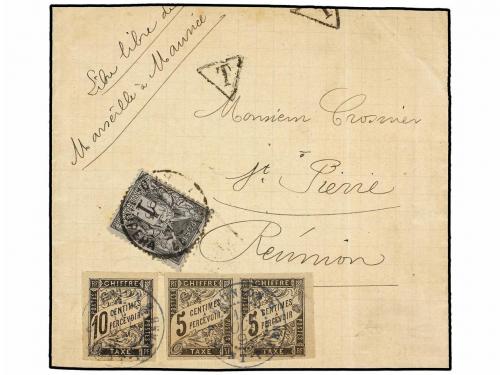 Libre libre de
Marseille à Maurice
T
T
Monsieur Crosnier
à
St. Pierre
Réunion
10 CENTIMES À PERCEVOIR
CHIFFRE
TAXE
5 CENTIMES À PERCEVOIR
CHIFFRE
TAXE
5 CENTIMES À PERCEVOIR
CHIFFRE
TAXE